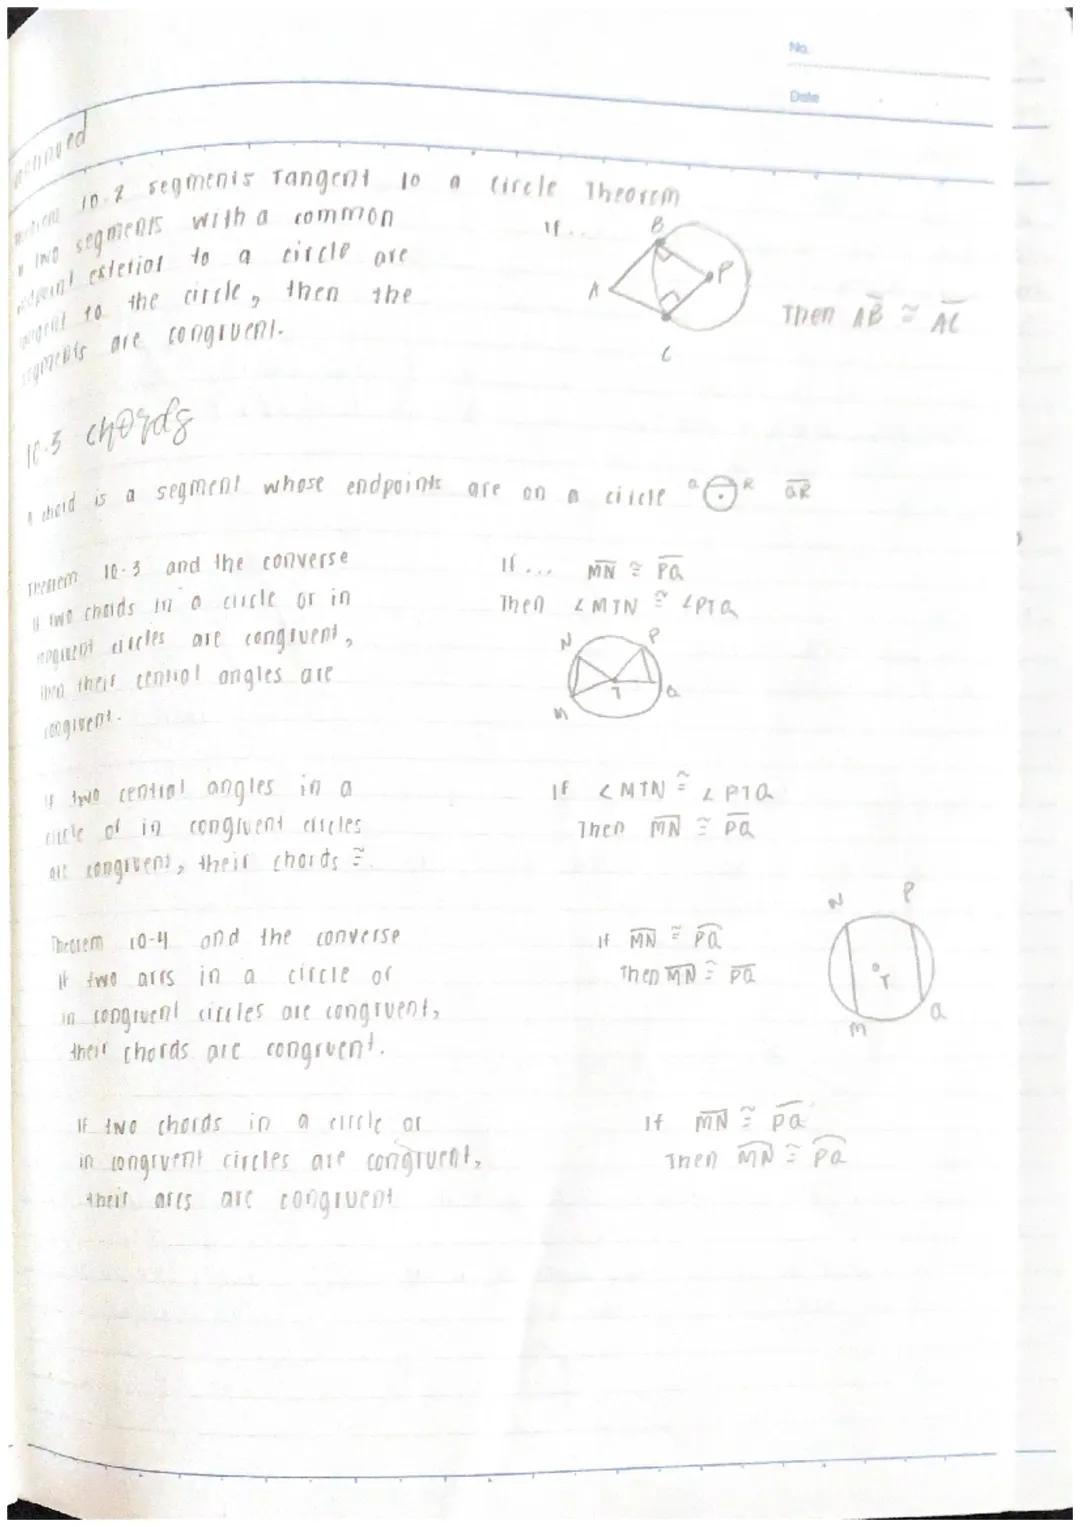 No.
Date
10-2 segments Tangent to a Circle Theorem
two segments with a common
endpoint exterior to a circle are
tangent to the circle, then the
segments are congruent.
If...
B
A
P
C
Then A̅B̅ ≅ A̅C̅
10-3 chords
A chord is a segment whose endpoints are on a circle
Q R Q̅R̅
Theorem 10-3 and the converse
If two chords in a circle or in
congruent circles are congruent,
then their central angles are
congruent.
If... M̅N̅ ≅ P̅Q̅
Then ∠MTN ≅ ∠PTQ
N P
T Q
M
If two central angles in a
circle or in congruent circles
are congruent, their chords ≅.
If ∠MTN ≅ ∠PTQ
Then M̅N̅ ≅ P̅Q̅
Theorem 10-4 and the converse
If two arcs in a circle or
in congruent circles are congruent,
their chords are congruent.
If M͡N ≅ P͡Q
Then M̅N̅ ≅ P̅Q̅
N P
T
M Q
If two chords in a circle or
in congruent circles are congruent,
their arcs are congruent
If M̅N̅ ≅ P̅Q̅
Then M͡N ≅ P͡Q